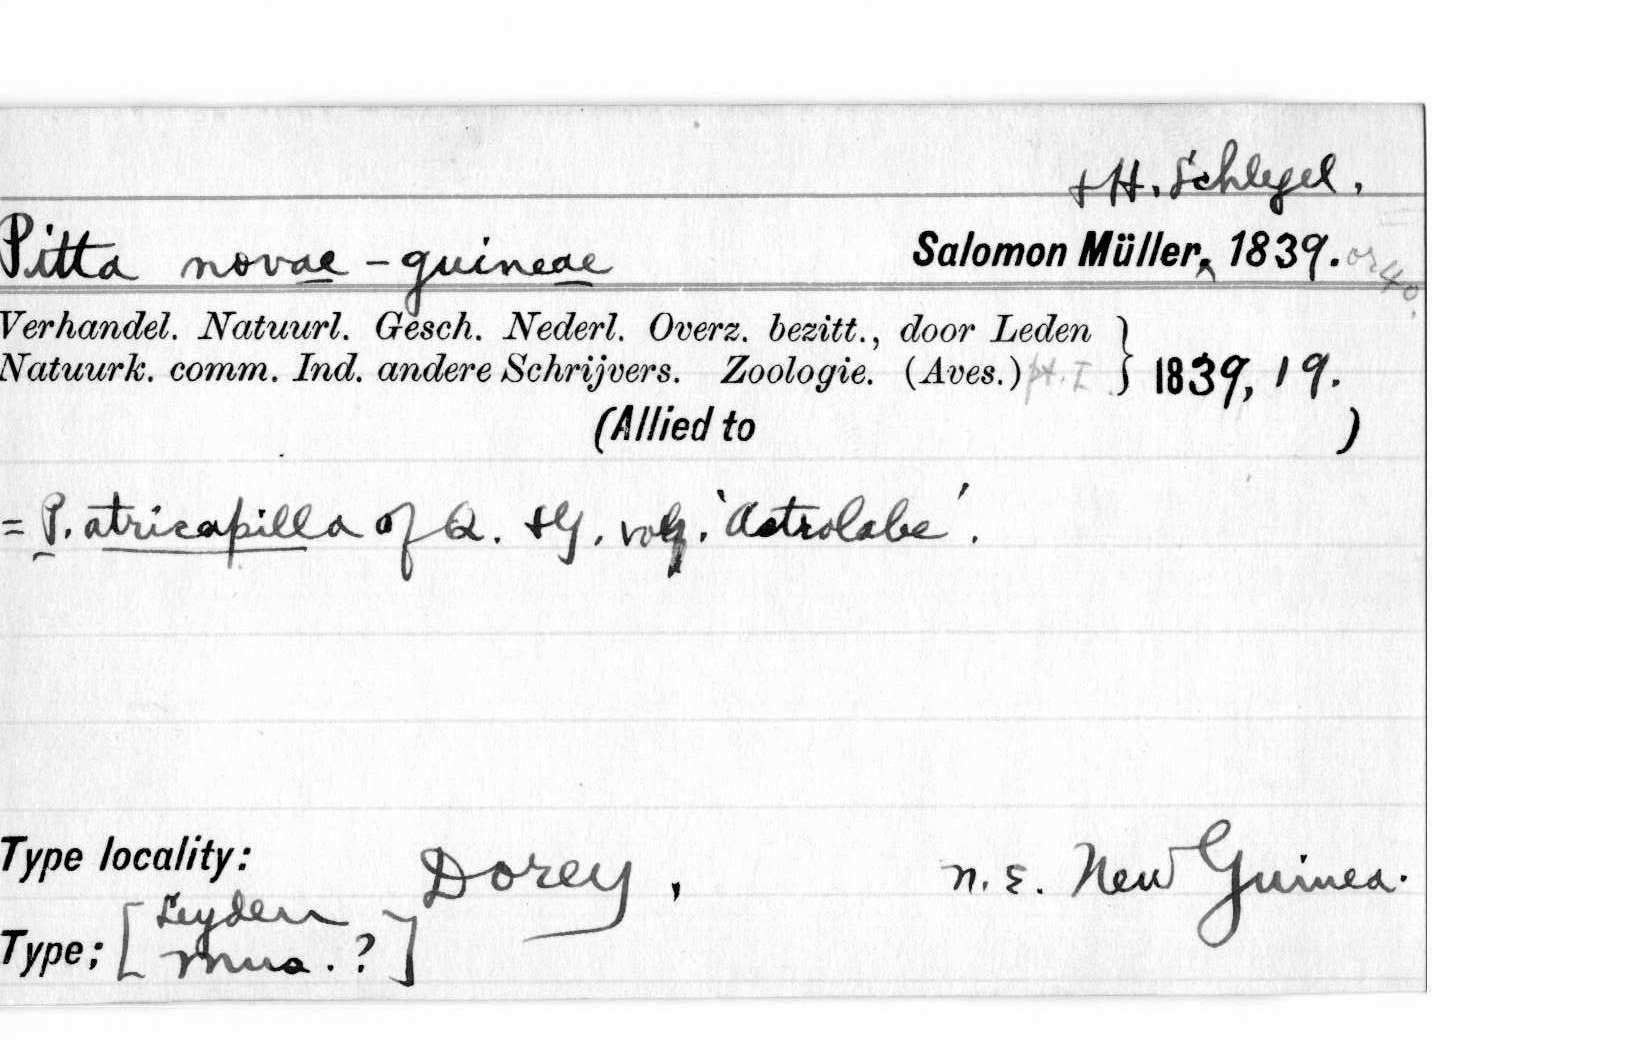 + H. Schlegel.
Pitta novae-guineae Salomon Müller, 1839. or 40.
Verhandel. Natuurl. Gesch. Nederl. Overz. bezitt., door Leden
Natuurk. comm. Ind. andere Schrijvers. Zoologie. (Aves.) pt. I } 1839, 19.
(Allied to )
= P. atricapilla of Q. + G. voy. 'Astrolabe'.
Type locality: Dorey, N. E. New Guinea.
Type; [Leyden
Mus. ?]